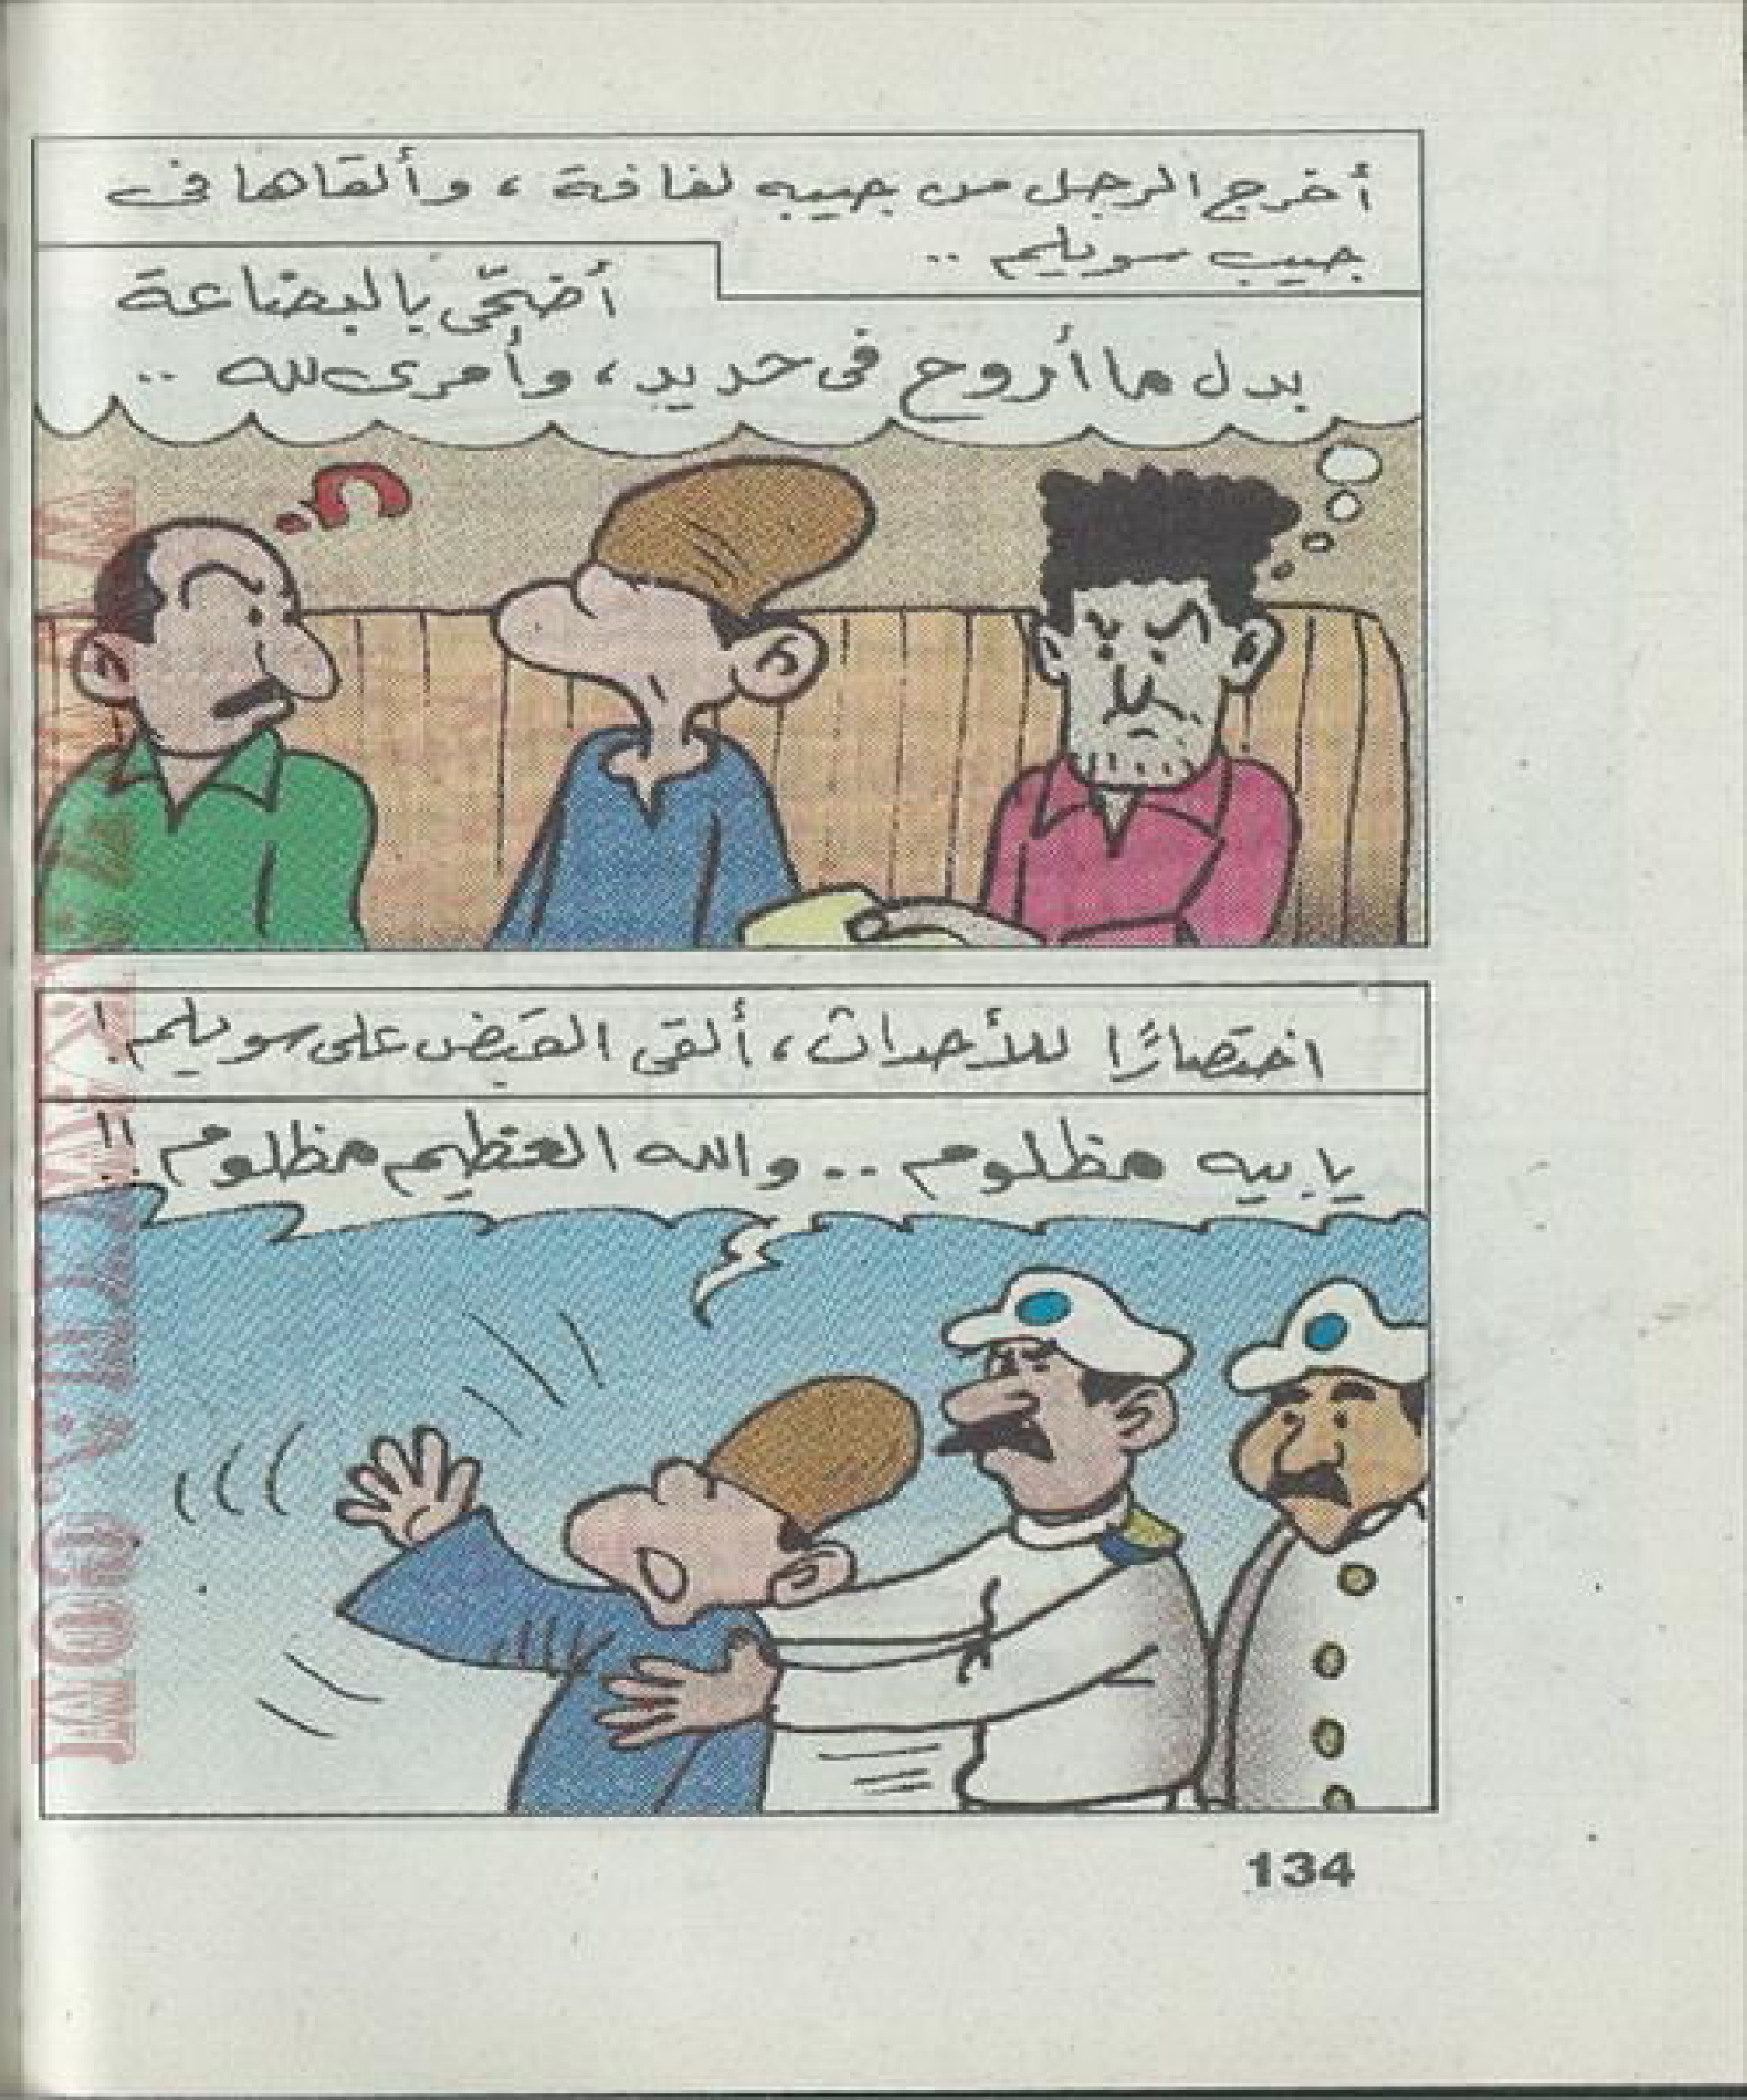 أخرج الرجل من جيبه لفافة ، وألقاها فى
جيب سويلم ..
أضحّى بالبضاعة
بدل ما أروح فى حديد ، وأمرى لله ..
؟
اختصارًا للأحداث ، ألقى القبض على سويلم !
يا بيه مظلوم .. والله العظيم مظلوم !!
134